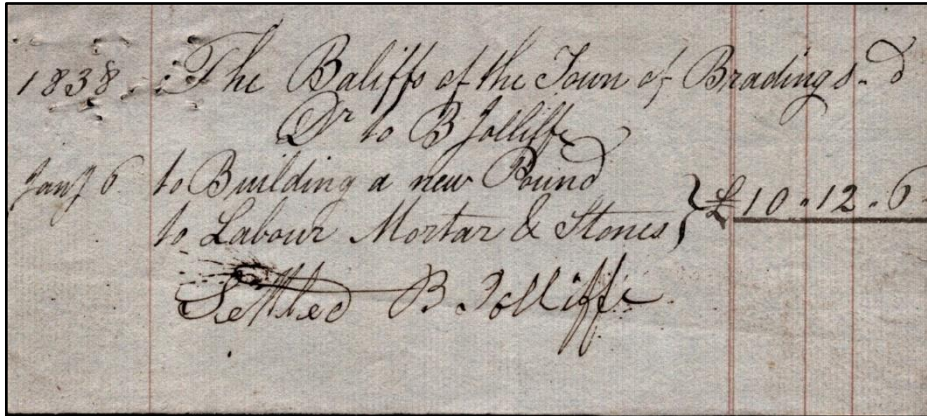 1838 The Baliffs of the Town of Brading s. d
Dr to B Jolliffe
Jany 6 to Building a new Pound
to Labour Mortar & Stones } £10.12.6
Settled B Jolliffe